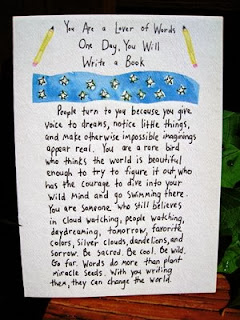 You Are a Lover of Words
One Day, You Will
Write a Book
People turn to you because you give
voice to dreams, notice little things,
and make otherwise impossible imaginings
appear real. You are a rare bird
who thinks the world is beautiful
enough to try to figure it out, who
has the courage to dive into your
wild mind and go swimming there.
You are someone who still believes
in cloud watching, people watching,
daydreaming, tomorrow, favorite
colors, silver clouds, dandelions, and
sorrow. Be sacred. Be cool. Be wild.
Go far. Words do more than plant
miracle seeds. With you writing
them, they can change the world.